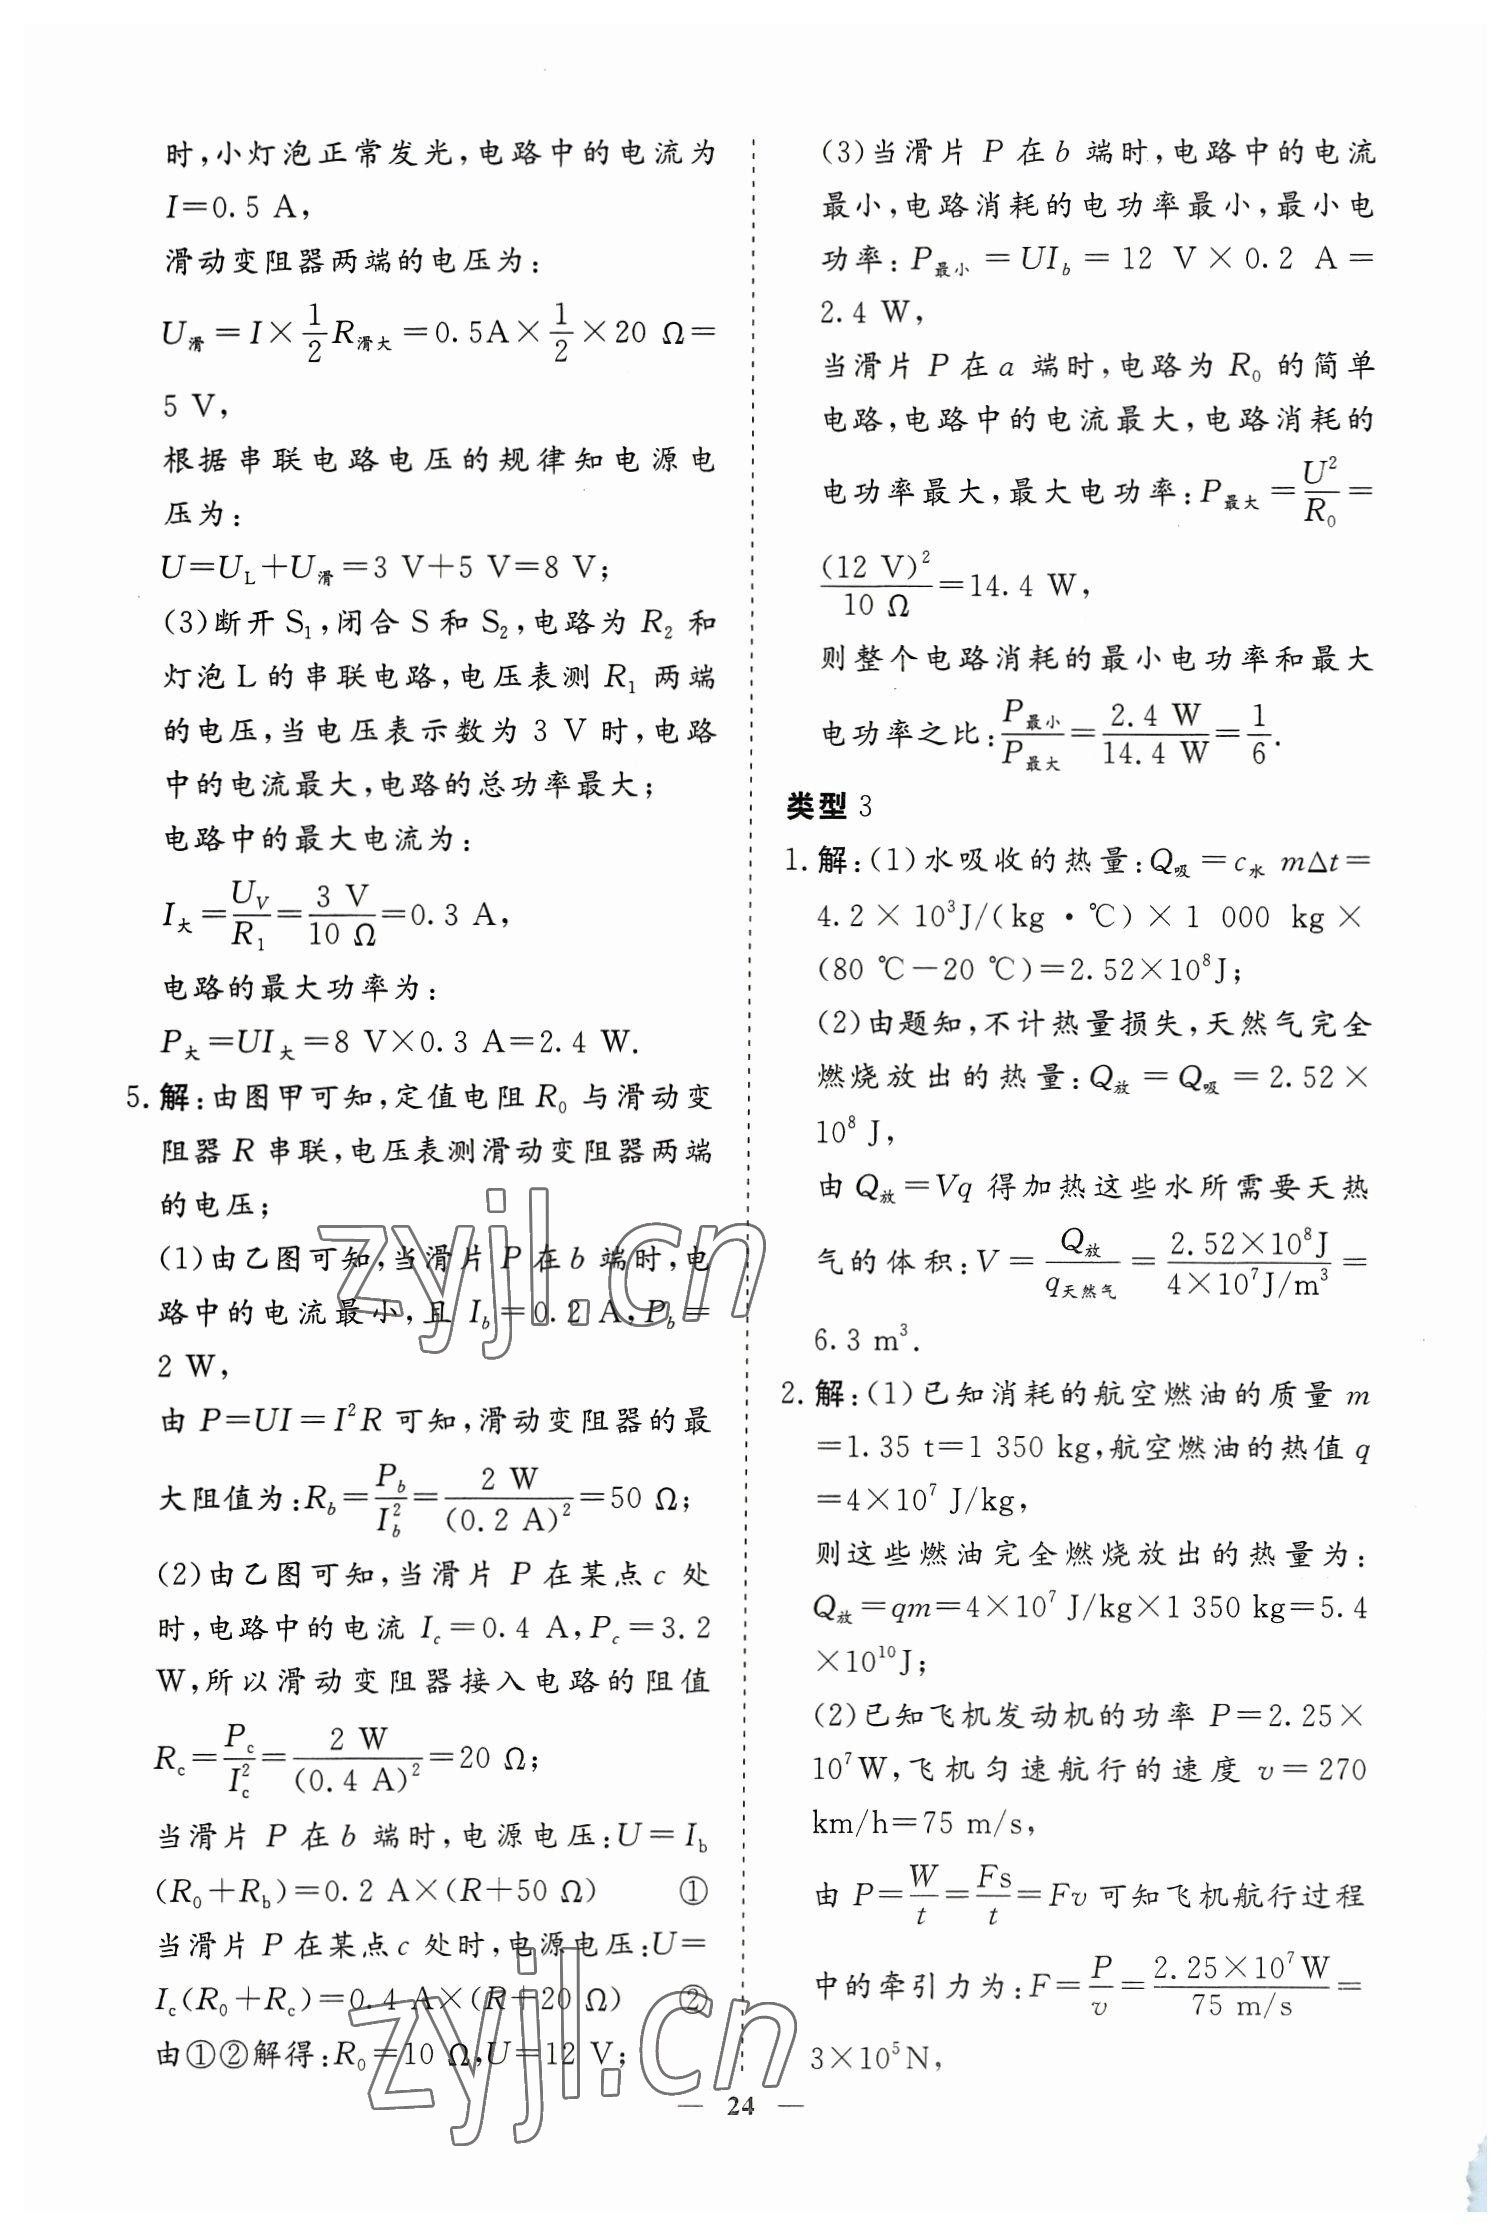 时,小灯泡正常发光,电路中的电流为
I=0.5 A,
滑动变阻器两端的电压为:
U滑=I×1/2R滑大=0.5A×1/2×20 Ω=
5 V,
根据串联电路电压的规律知电源电
压为:
U=U_L+U滑=3 V+5 V=8 V;
(3)断开S₁,闭合S和S₂,电路为R₂和
灯泡L的串联电路,电压表测R₁两端
的电压,当电压表示数为3 V时,电路
中的电流最大,电路的总功率最大;
电路中的最大电流为:
I大=U_V/R₁=3 V/10 Ω=0.3 A,
电路的最大功率为:
P大=UI大=8 V×0.3 A=2.4 W.
5.解:由图甲可知,定值电阻R₀与滑动变
阻器R串联,电压表测滑动变阻器两端
的电压;
(1)由乙图可知,当滑片P在b端时,电
路中的电流最小,且I_b=0.2 A,P_b=
2 W,
由P=UI=I²R可知,滑动变阻器的最
大阻值为:R_b=P_b/I_b²=2 W/(0.2 A)²=50 Ω;
(2)由乙图可知,当滑片P在某点c处
时,电路中的电流I_c=0.4 A,P_c=3.2
W,所以滑动变阻器接入电路的阻值
R_c=P_c/I_c²=2 W/(0.4 A)²=20 Ω;
当滑片P在b端时,电源电压:U=I_b
(R₀+R_b)=0.2 A×(R+50 Ω) ①
当滑片P在某点c处时,电源电压:U=
I_c(R₀+R_c)=0.4 A×(R+20 Ω) ②
由①②解得:R₀=10 Ω,U=12 V;
(3)当滑片P在b端时,电路中的电流
最小,电路消耗的电功率最小,最小电
功率:P最小=UI_b=12 V×0.2 A=
2.4 W,
当滑片P在a端时,电路为R₀的简单
电路,电路中的电流最大,电路消耗的
电功率最大,最大电功率:P最大=U²/R₀=
(12 V)²/10 Ω=14.4 W,
则整个电路消耗的最小电功率和最大
电功率之比:P最小/P最大=2.4 W/14.4 W=1/6.
类型3
1.解:(1)水吸收的热量:Q吸=c水mΔt=
4.2×10³J/(kg·℃)×1 000 kg×
(80 ℃-20 ℃)=2.52×10⁸J;
(2)由题知,不计热量损失,天然气完全
燃烧放出的热量:Q放=Q吸=2.52×
10⁸ J,
由Q放=Vq得加热这些水所需要天热
气的体积:V=Q放/q天然气=2.52×10⁸J/4×10⁷J/m³=
6.3 m³.
2.解:(1)已知消耗的航空燃油的质量m
=1.35 t=1 350 kg,航空燃油的热值q
=4×10⁷ J/kg,
则这些燃油完全燃烧放出的热量为:
Q放=qm=4×10⁷ J/kg×1 350 kg=5.4
×10¹⁰J;
(2)已知飞机发动机的功率P=2.25×
10⁷W,飞机匀速航行的速度v=270
km/h=75 m/s,
由P=W/t=Fs/t=Fv可知飞机航行过程
中的牵引力为:F=P/v=2.25×10⁷W/75 m/s=
3×10⁵N,
— 24 —
zyjl.cn
zyjl.cn